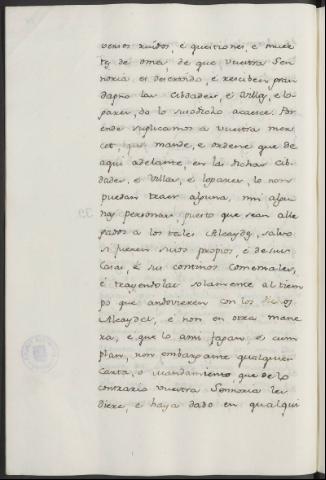 venios ruidos, é questiones, é muer
tes de omes de que vuestra Sen
noria es deservido, é resciben gran
dapno las Cibdades, é Villas, é lo
gares, do lo susodicho acaesce. Por
ende suplicamos a vuestra mer
cet, que mande, é ordene que de
aqui adelante, en las dichas Cib
dades, é Villas, é logares, lo non
puedan traer alguna, nin algu
nas personas, puesto que sean alle
gados a los tales Alcaydes, salvo
si fueren suios propios, é de sus
Casas, é sus continos comensales,
é trayendolas solamente al tiem
po que andovieren con los dichos
Alcaydes, é non en otra mane
ra, é que lo ansi fagan, é cum
plan, non embargante qualquier
Carta, o mandamiento, que de lo
contrario vuestra Sennoria les
diere, é haya dado en qualqui